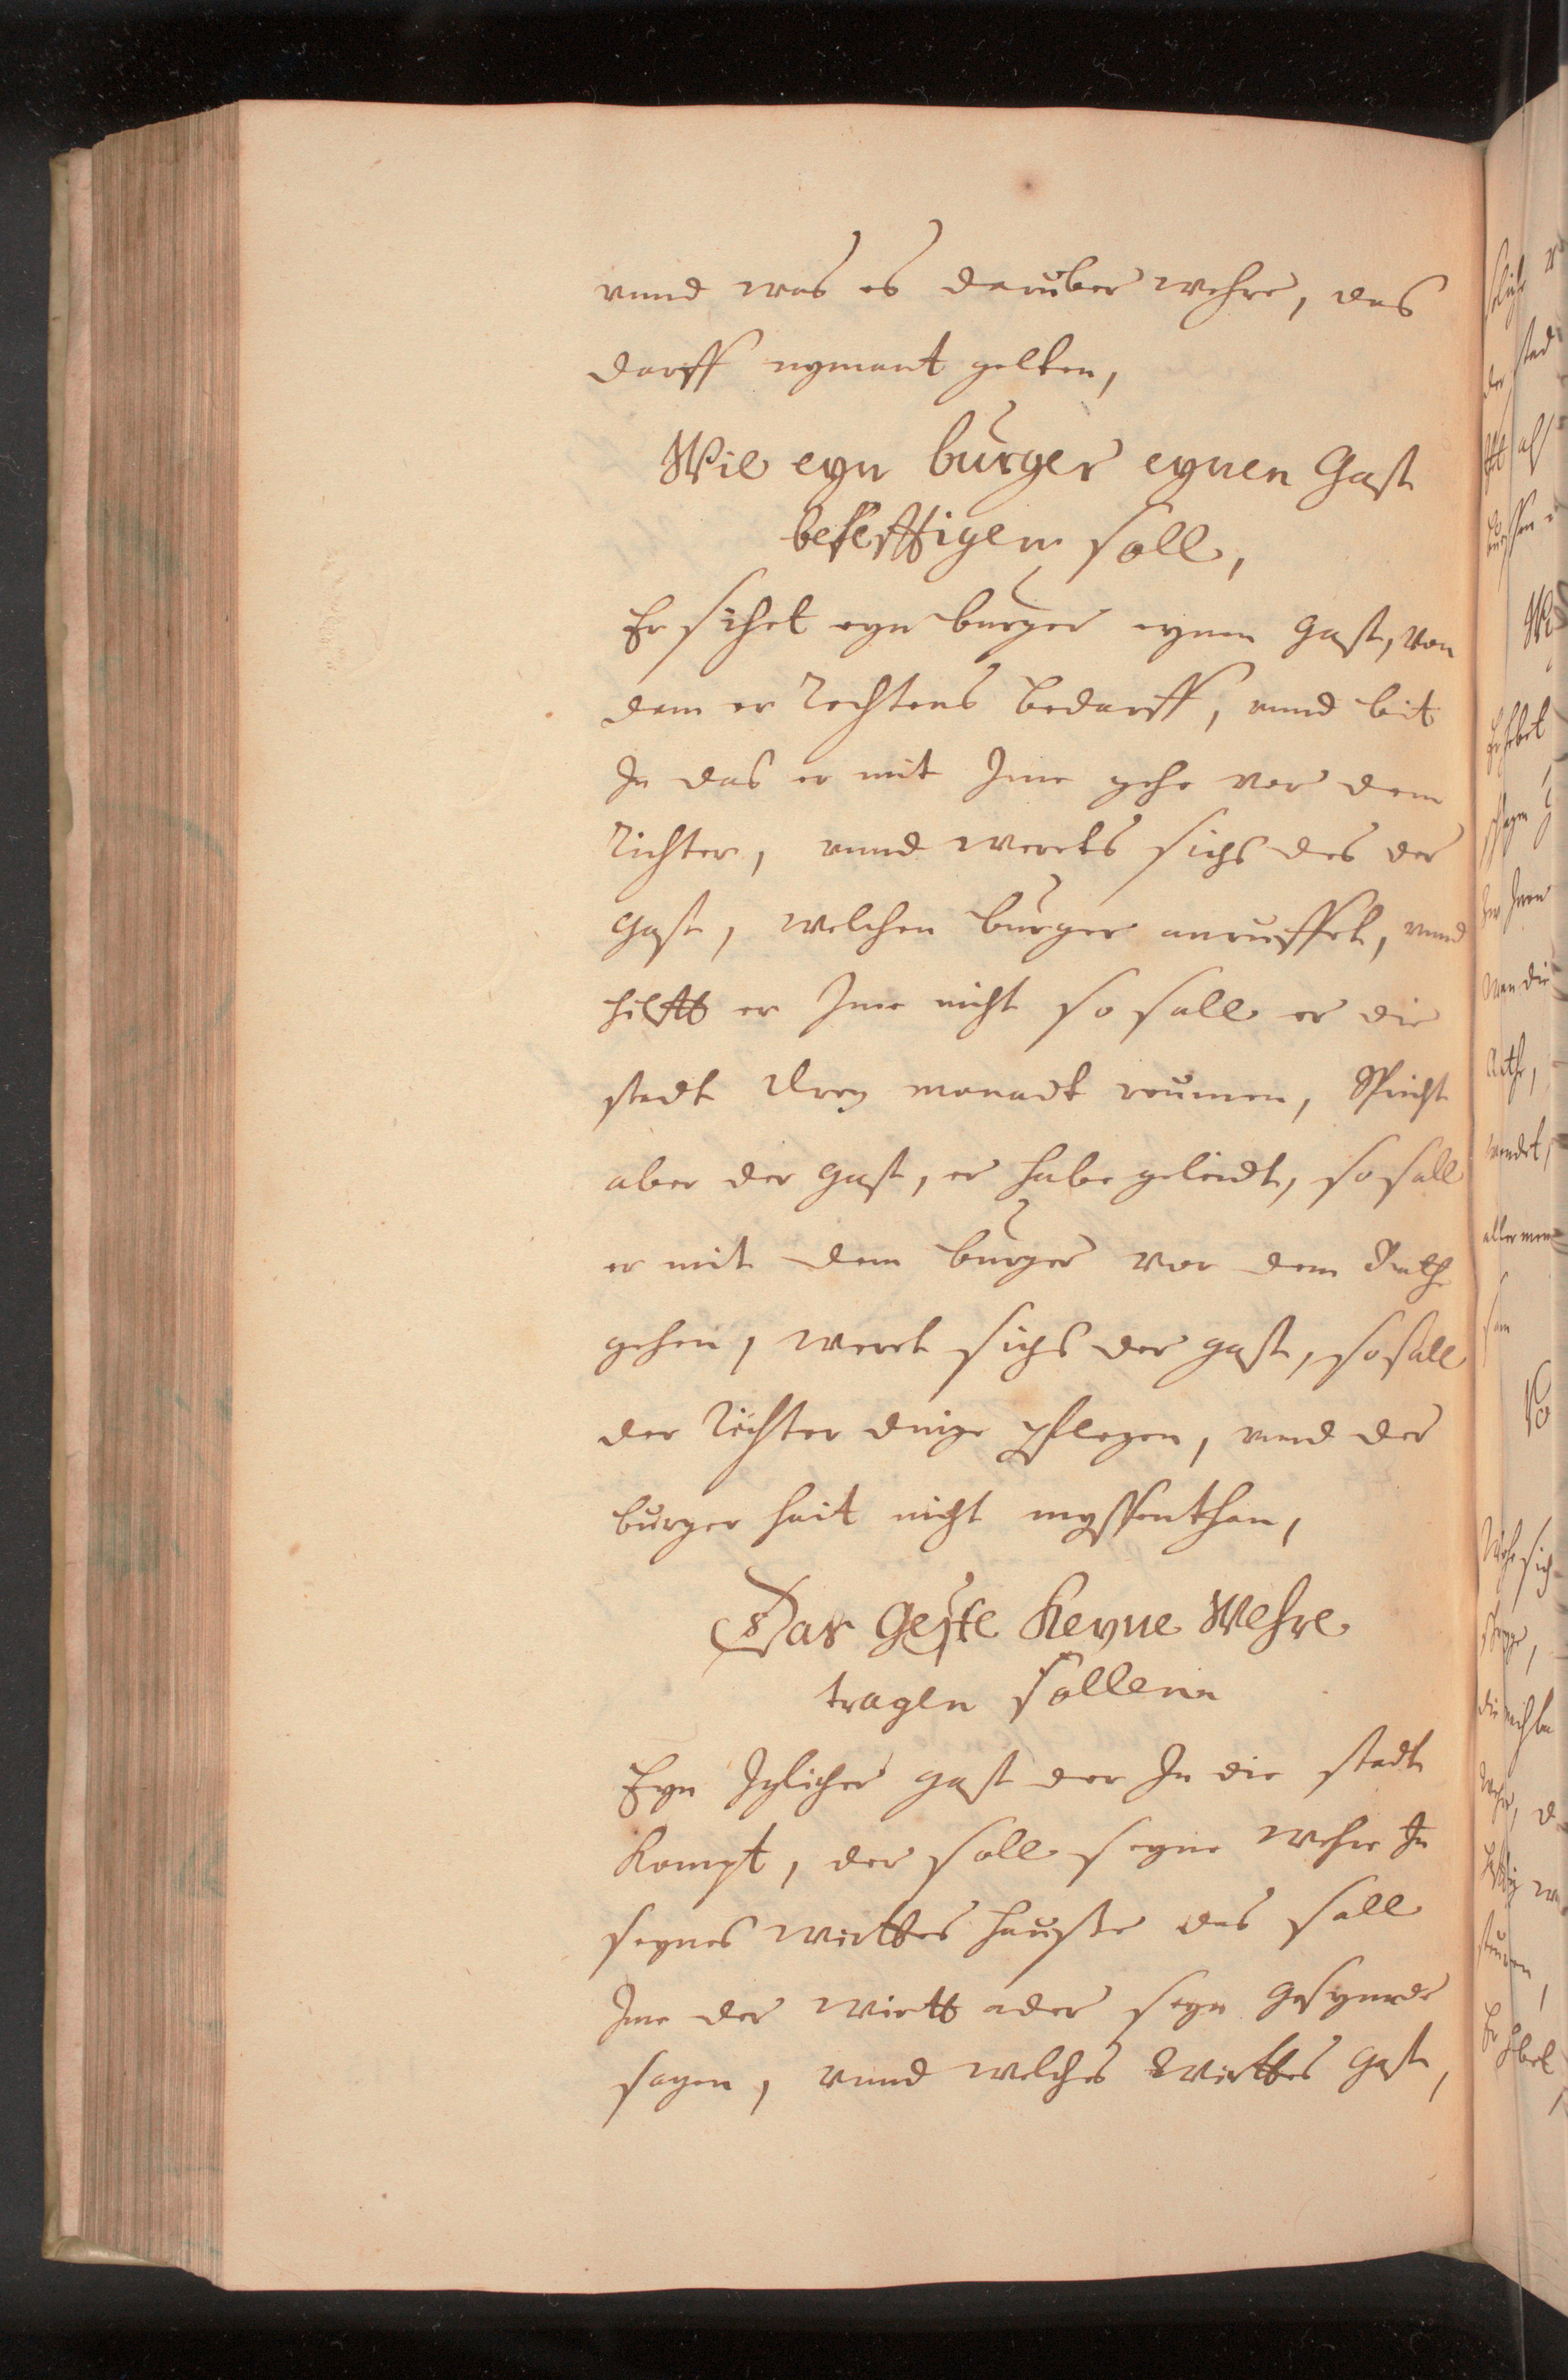 vnnd was es daruber wehre, das
darff nymant gelten,
Wie eyn burger eynen Gast
beseftigen soll,
Er sihet eyn burger eynen gast, von
dem er Rechtens bedarff, vnnd bit
In das er mit Ime gehe vor dem
Richter, vnnd werets sichs des der
gast, welchen burger anruffet, vnnd
hilfft er Ime nicht so sall er die
stadt drey monadt reumen, Spricht
aber der gast, er habe geleidt, so sall
er mit dem burger vor dem Rathe
gehen, weret sichs der gast, so sall
der Richter dinge pflegen, vnnd der
burger hait nicht myssenthan,
Das Geste Keyne Wehre
tragen sollenn
Eyn Iglicher gast der In die stadt
Kompt, der soll seyne wehre In
seynes wirttes hausse das sall
Ime der wirtt ader seyn gesynnde
sagen, vnnd welches Wirttes gast,